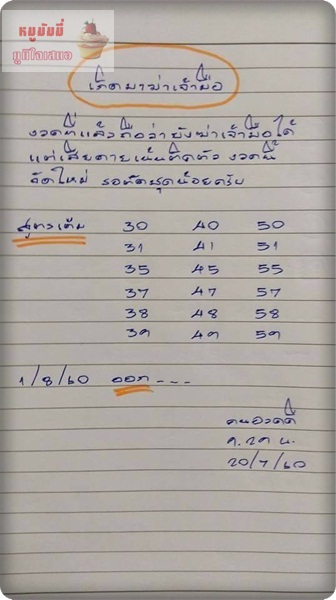 หมูมัมมี่
มูมีใจเสมอ
เกิดมาฆ่าเจ้ามือ
งวดที่แล้วถือว่ายังฆ่าเจ้ามือได้
แต่เสียดายเน้นผิดตัว งวดนี้
จัดใหม่ รอชุดน้อยครับ
สูตรเดิม 30 40 50
31 41 51
35 45 55
37 47 57
38 48 58
39 49 59
1/8/60 ออก ---
คนอวดดี
20/7/60